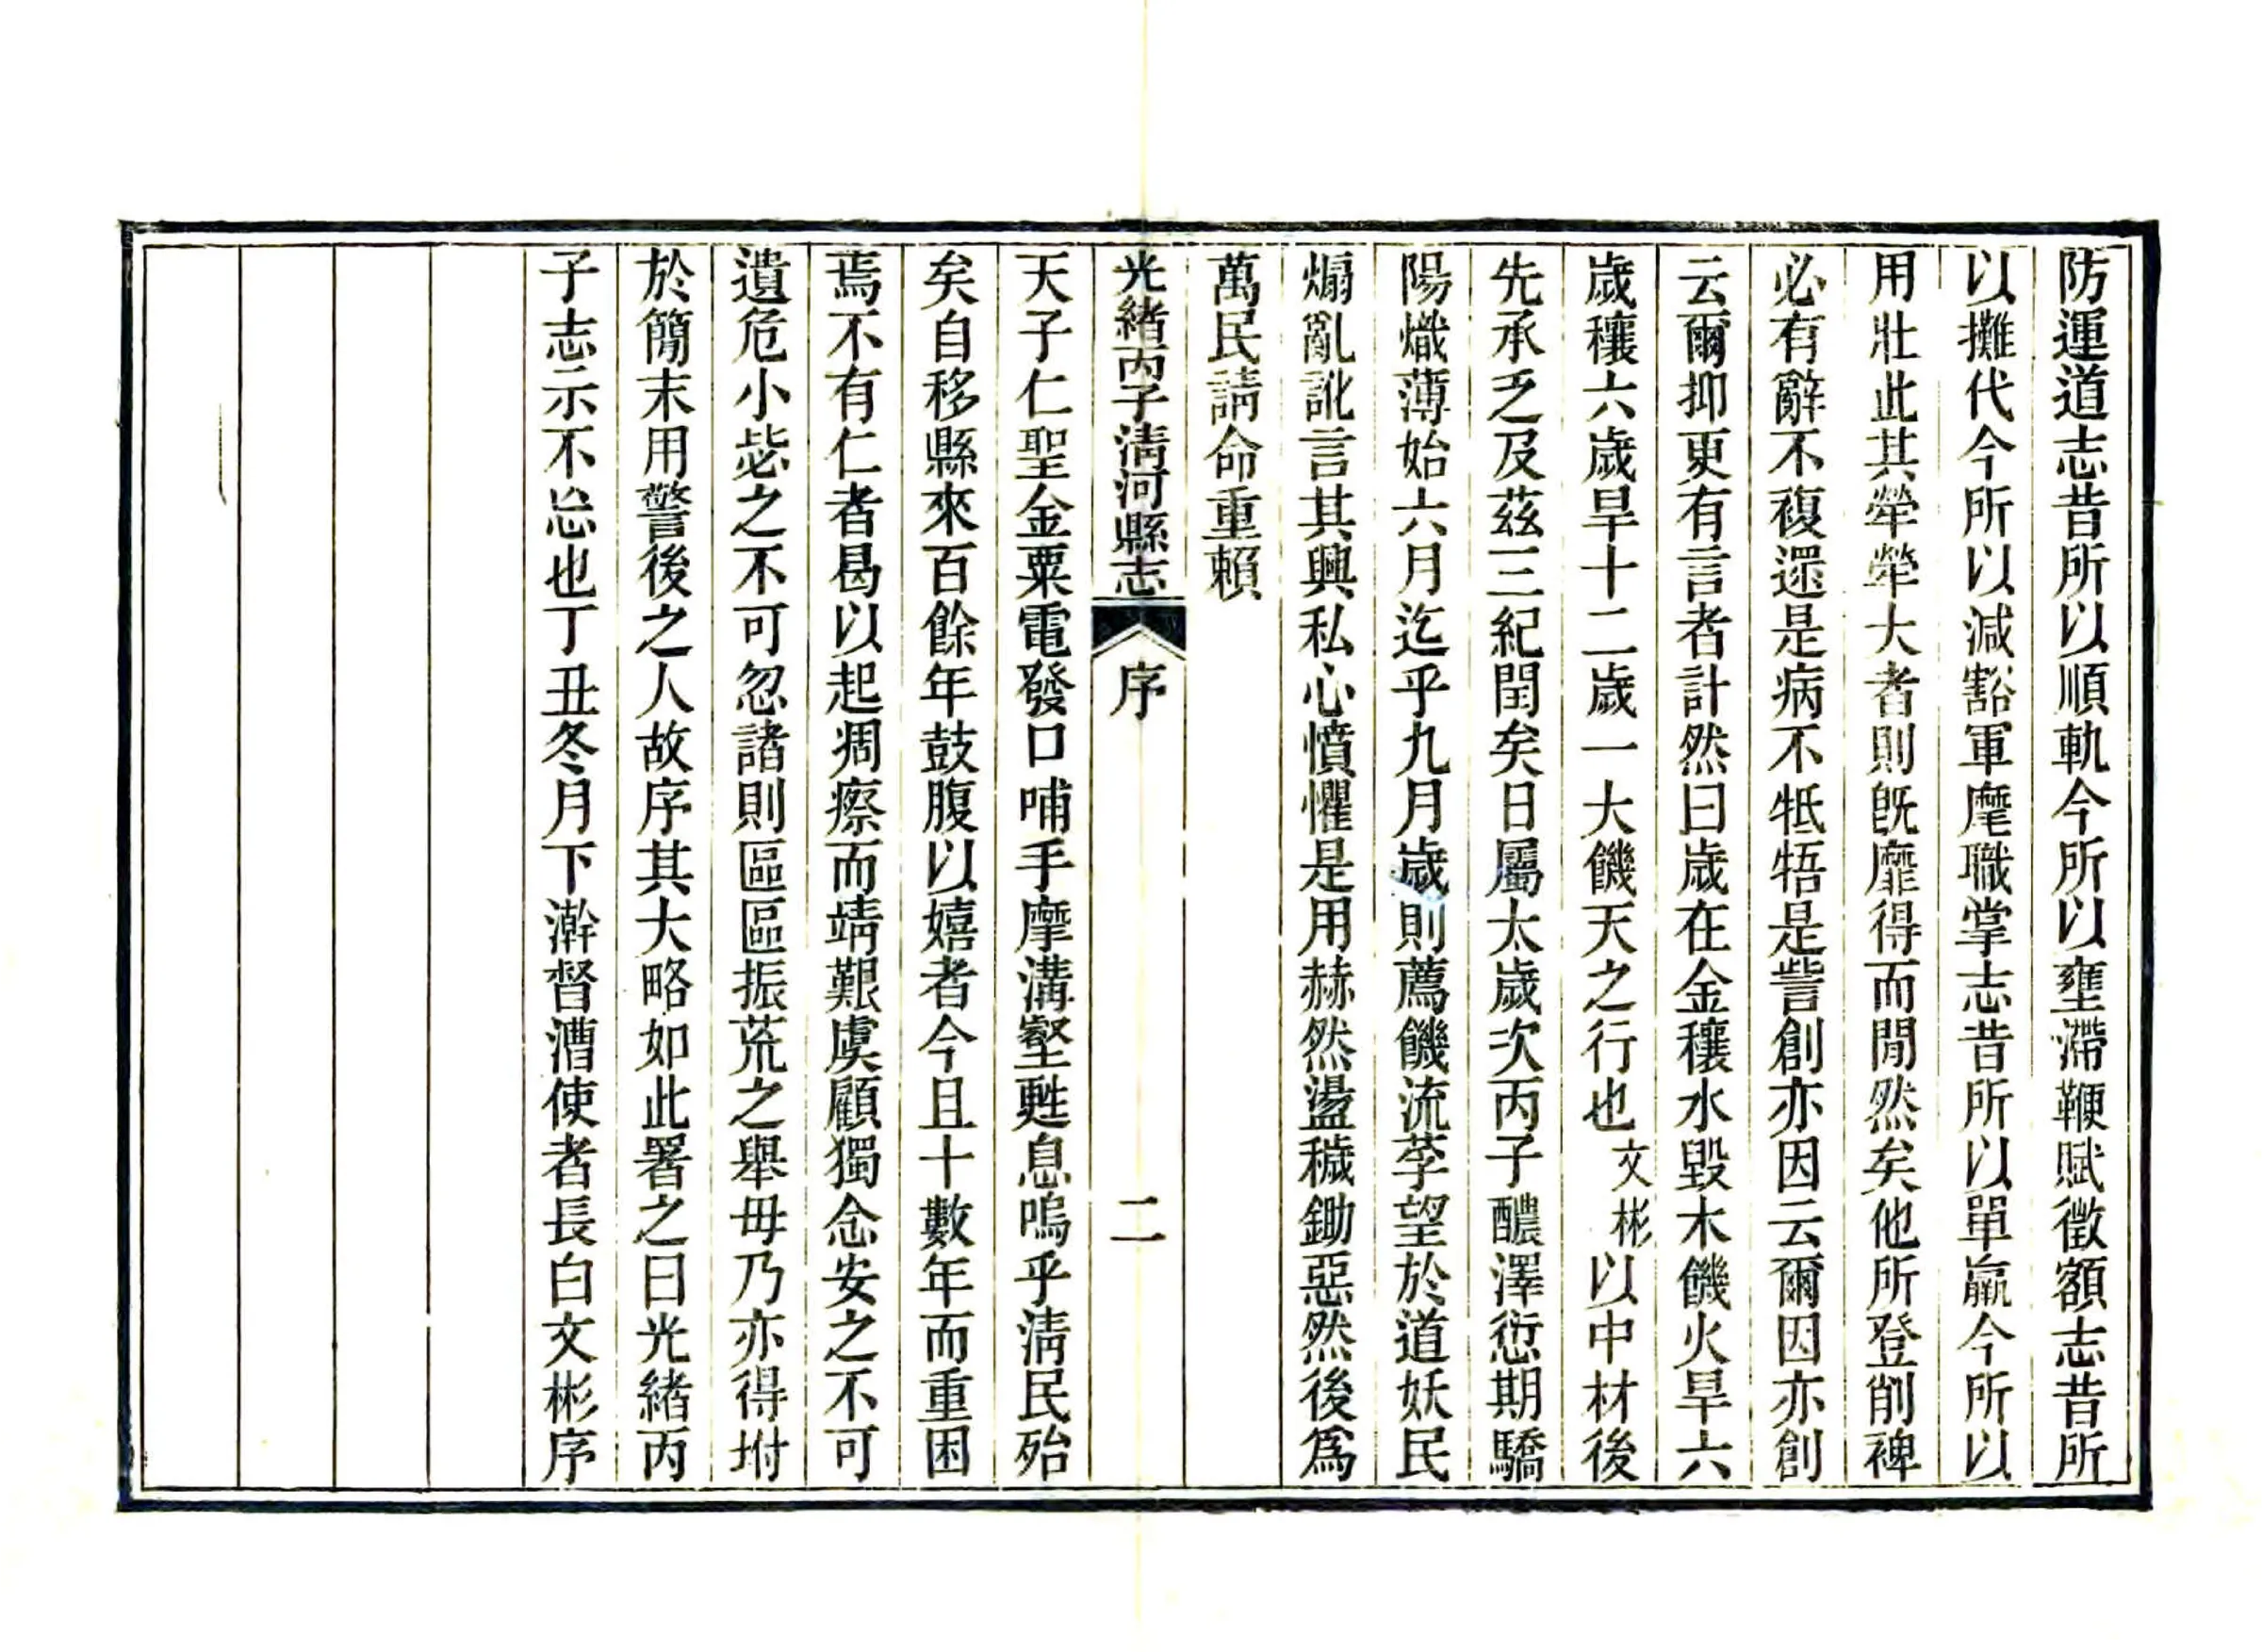 防運道志昔所以順軌今所以壅滯鞭賦徵額志昔所
以攤代今所以減豁軍麾職掌志昔所以單羸今所以
用壯此其犖犖大者則旣靡得而閒然矣他所登削裨
必有辭不複還是病不牴牾是訾創亦因云爾因亦創
云爾抑更有言者計然曰歲在金穰水毀木饑火旱六
歲穰六歲旱十二歲一大饑天之行也文彬以中材後
先承乏及茲三紀閏矣日屬太歲次丙子醲澤愆期驕
陽熾薄始六月迄乎九月歲則薦饑流莩望於道妖民
煽亂訛言其興私心憤懼是用赫然盪穢鋤惡然後爲
萬民請命重賴
光緒丙子清河縣志 序 二
天子仁聖金粟電發口哺手摩溝壑甦息嗚乎清民殆
矣自移縣來百餘年鼓腹以嬉者今且十數年而重困
焉不有仁者曷以起凋瘵而靖艱虞顧獨念安之不可
遺危小毖之不可忽諸則區區振荒之舉毋乃亦得坿
於簡末用警後之人故序其大略如此署之曰光緒丙
子志示不忘也丁丑冬月下澣督漕使者長白文彬序